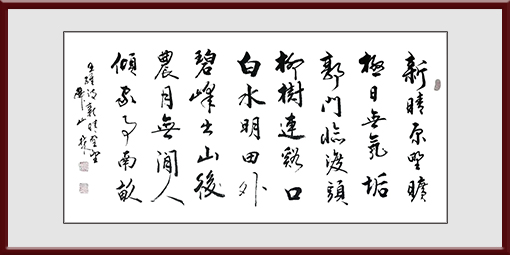 新晴原野曠
極目無氛垢
郭門臨渡頭
柳樹連谿口
白水明田外
碧峰出山後
農月無閒人
傾家事南畝
王維詩新晴